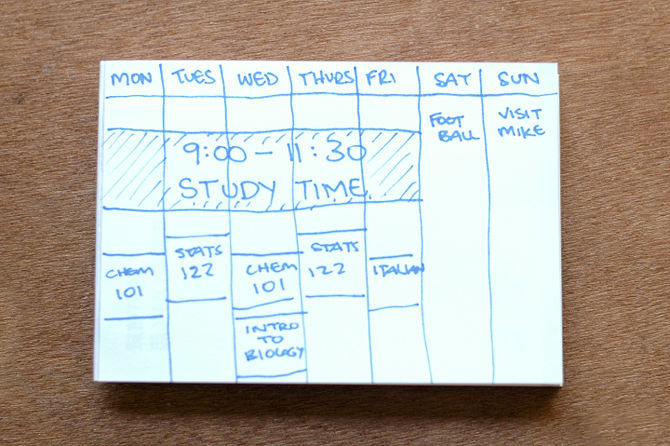 MON TUES WED THURS FRI SAT SUN
FOOT
BALL
VISIT
MIKE
9:00 - 11:30
STUDY TIME
CHEM
101
STATS
122
CHEM
101
INTRO
TO
BIOLOGY
STATS
122
ITALIAN